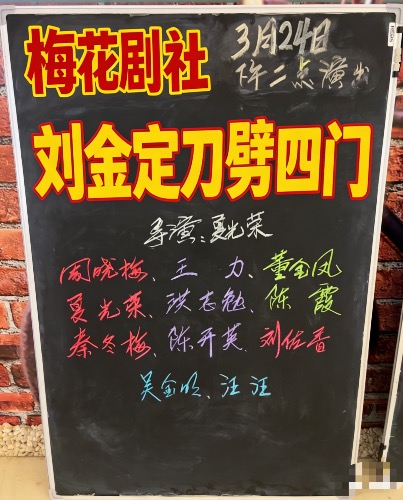 梅花剧社
3月24日
下午二点演出
刘金定刀劈四门
导演:夏光荣
周晓梅、王 力、董金凤
夏光荣、洪志勉、陈 霞
秦冬梅、陈开英、刘佐香
吴金明、汪汪